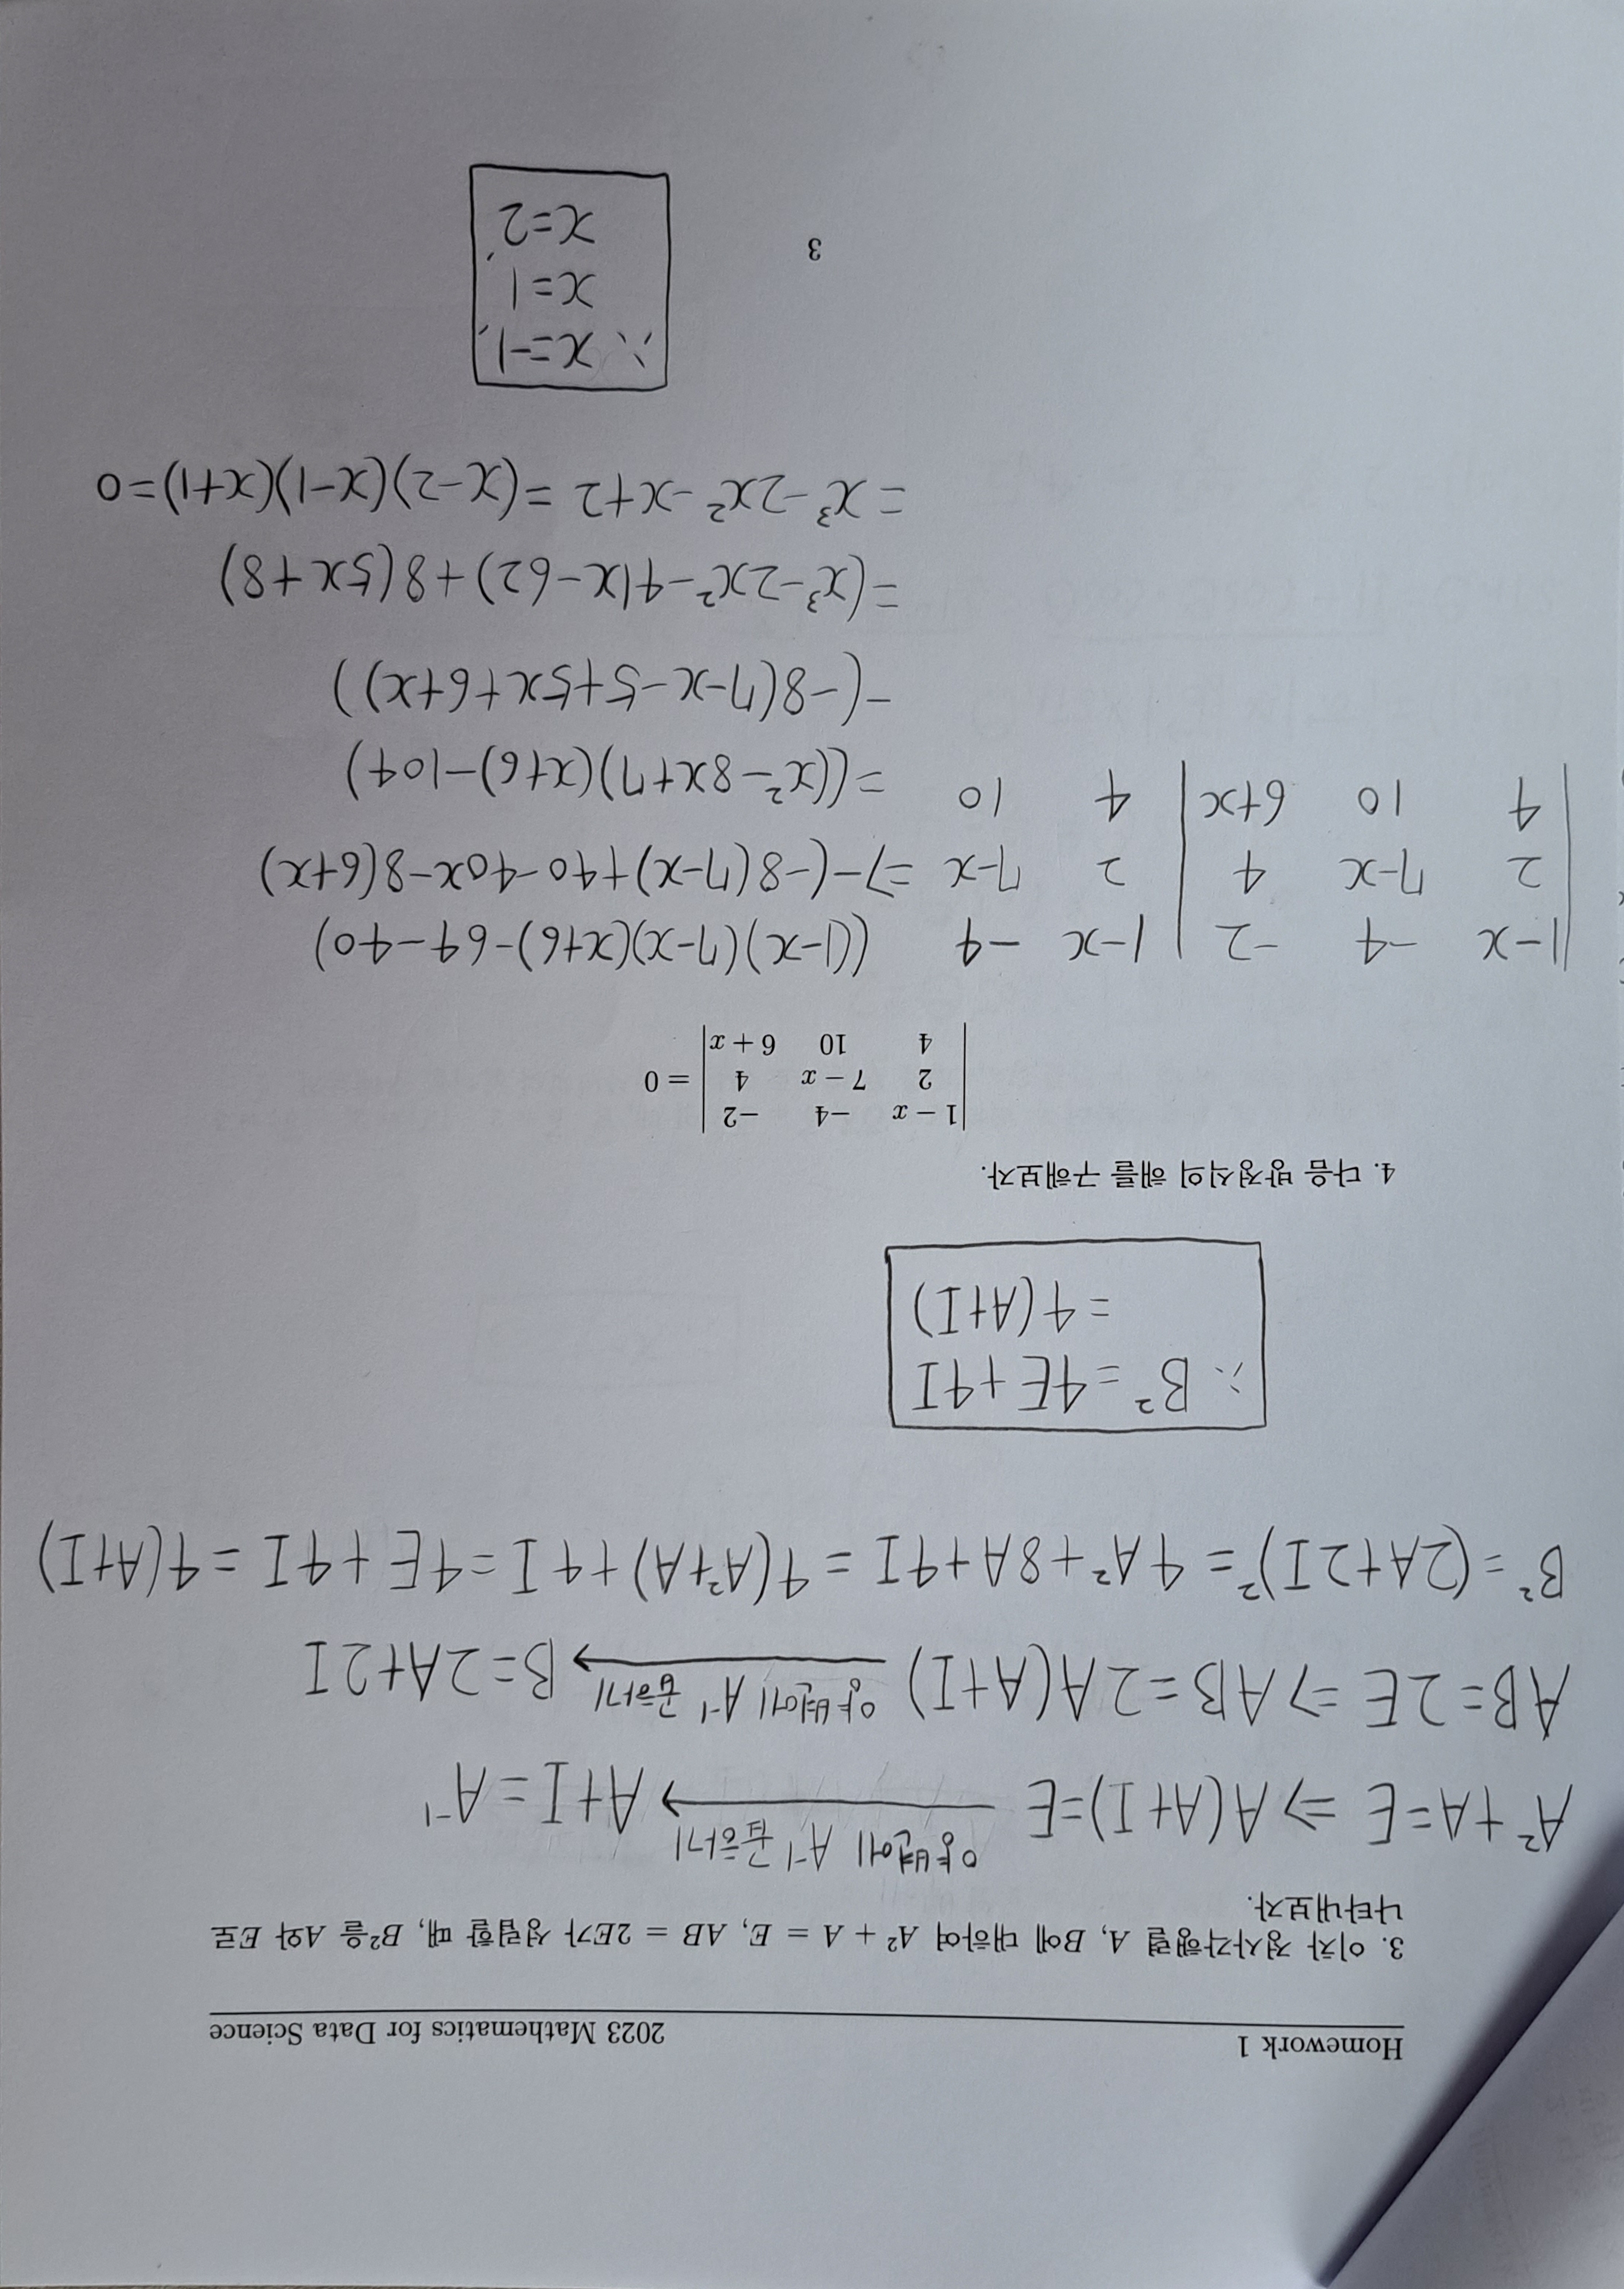 Homework 1 2023 Mathematics for Data Science
3. 이차 정사각행렬 A, B에 대하여 A² + A = E, AB = 2E가 성립할 때, B²을 A와 E로
나타내보자.
A² + A = E ⇒ A(A+I) = E 양변에 A⁻¹ 곱하기 → A+I = A⁻¹
AB = 2E ⇒ AB = 2A(A+I) 양변에 A⁻¹ 곱하기 → B = 2A+2I
B² = (2A+2I)² = 4A² + 8A + 4I = 4(A²+A) + 4I = 4E + 4I = 4(A+I)
∴ B² = 4E + 4I
= 4(A+I)
4. 다음 방정식의 해를 구해보자.
|1 − x −4 −2|
|2 7 − x 4| = 0
|4 10 6 + x|
|1-x -4 -2| 1-x -4 ((1-x)(7-x)(x+6)-64-40)
|2 7-x 4| 2 7-x ⇒ -(-8(7-x)+40-40x-8(6+x)
|4 10 6+x| 4 10
= ((x²-8x+7)(x+6)-104)
-(-8(7-x-5+5x+6+x))
= (x³-2x²-41x-62)+8(5x+8)
= x³-2x²-x+2 = (x-2)(x-1)(x+1) = 0
∴ x=-1,
x=1,
x=2
3